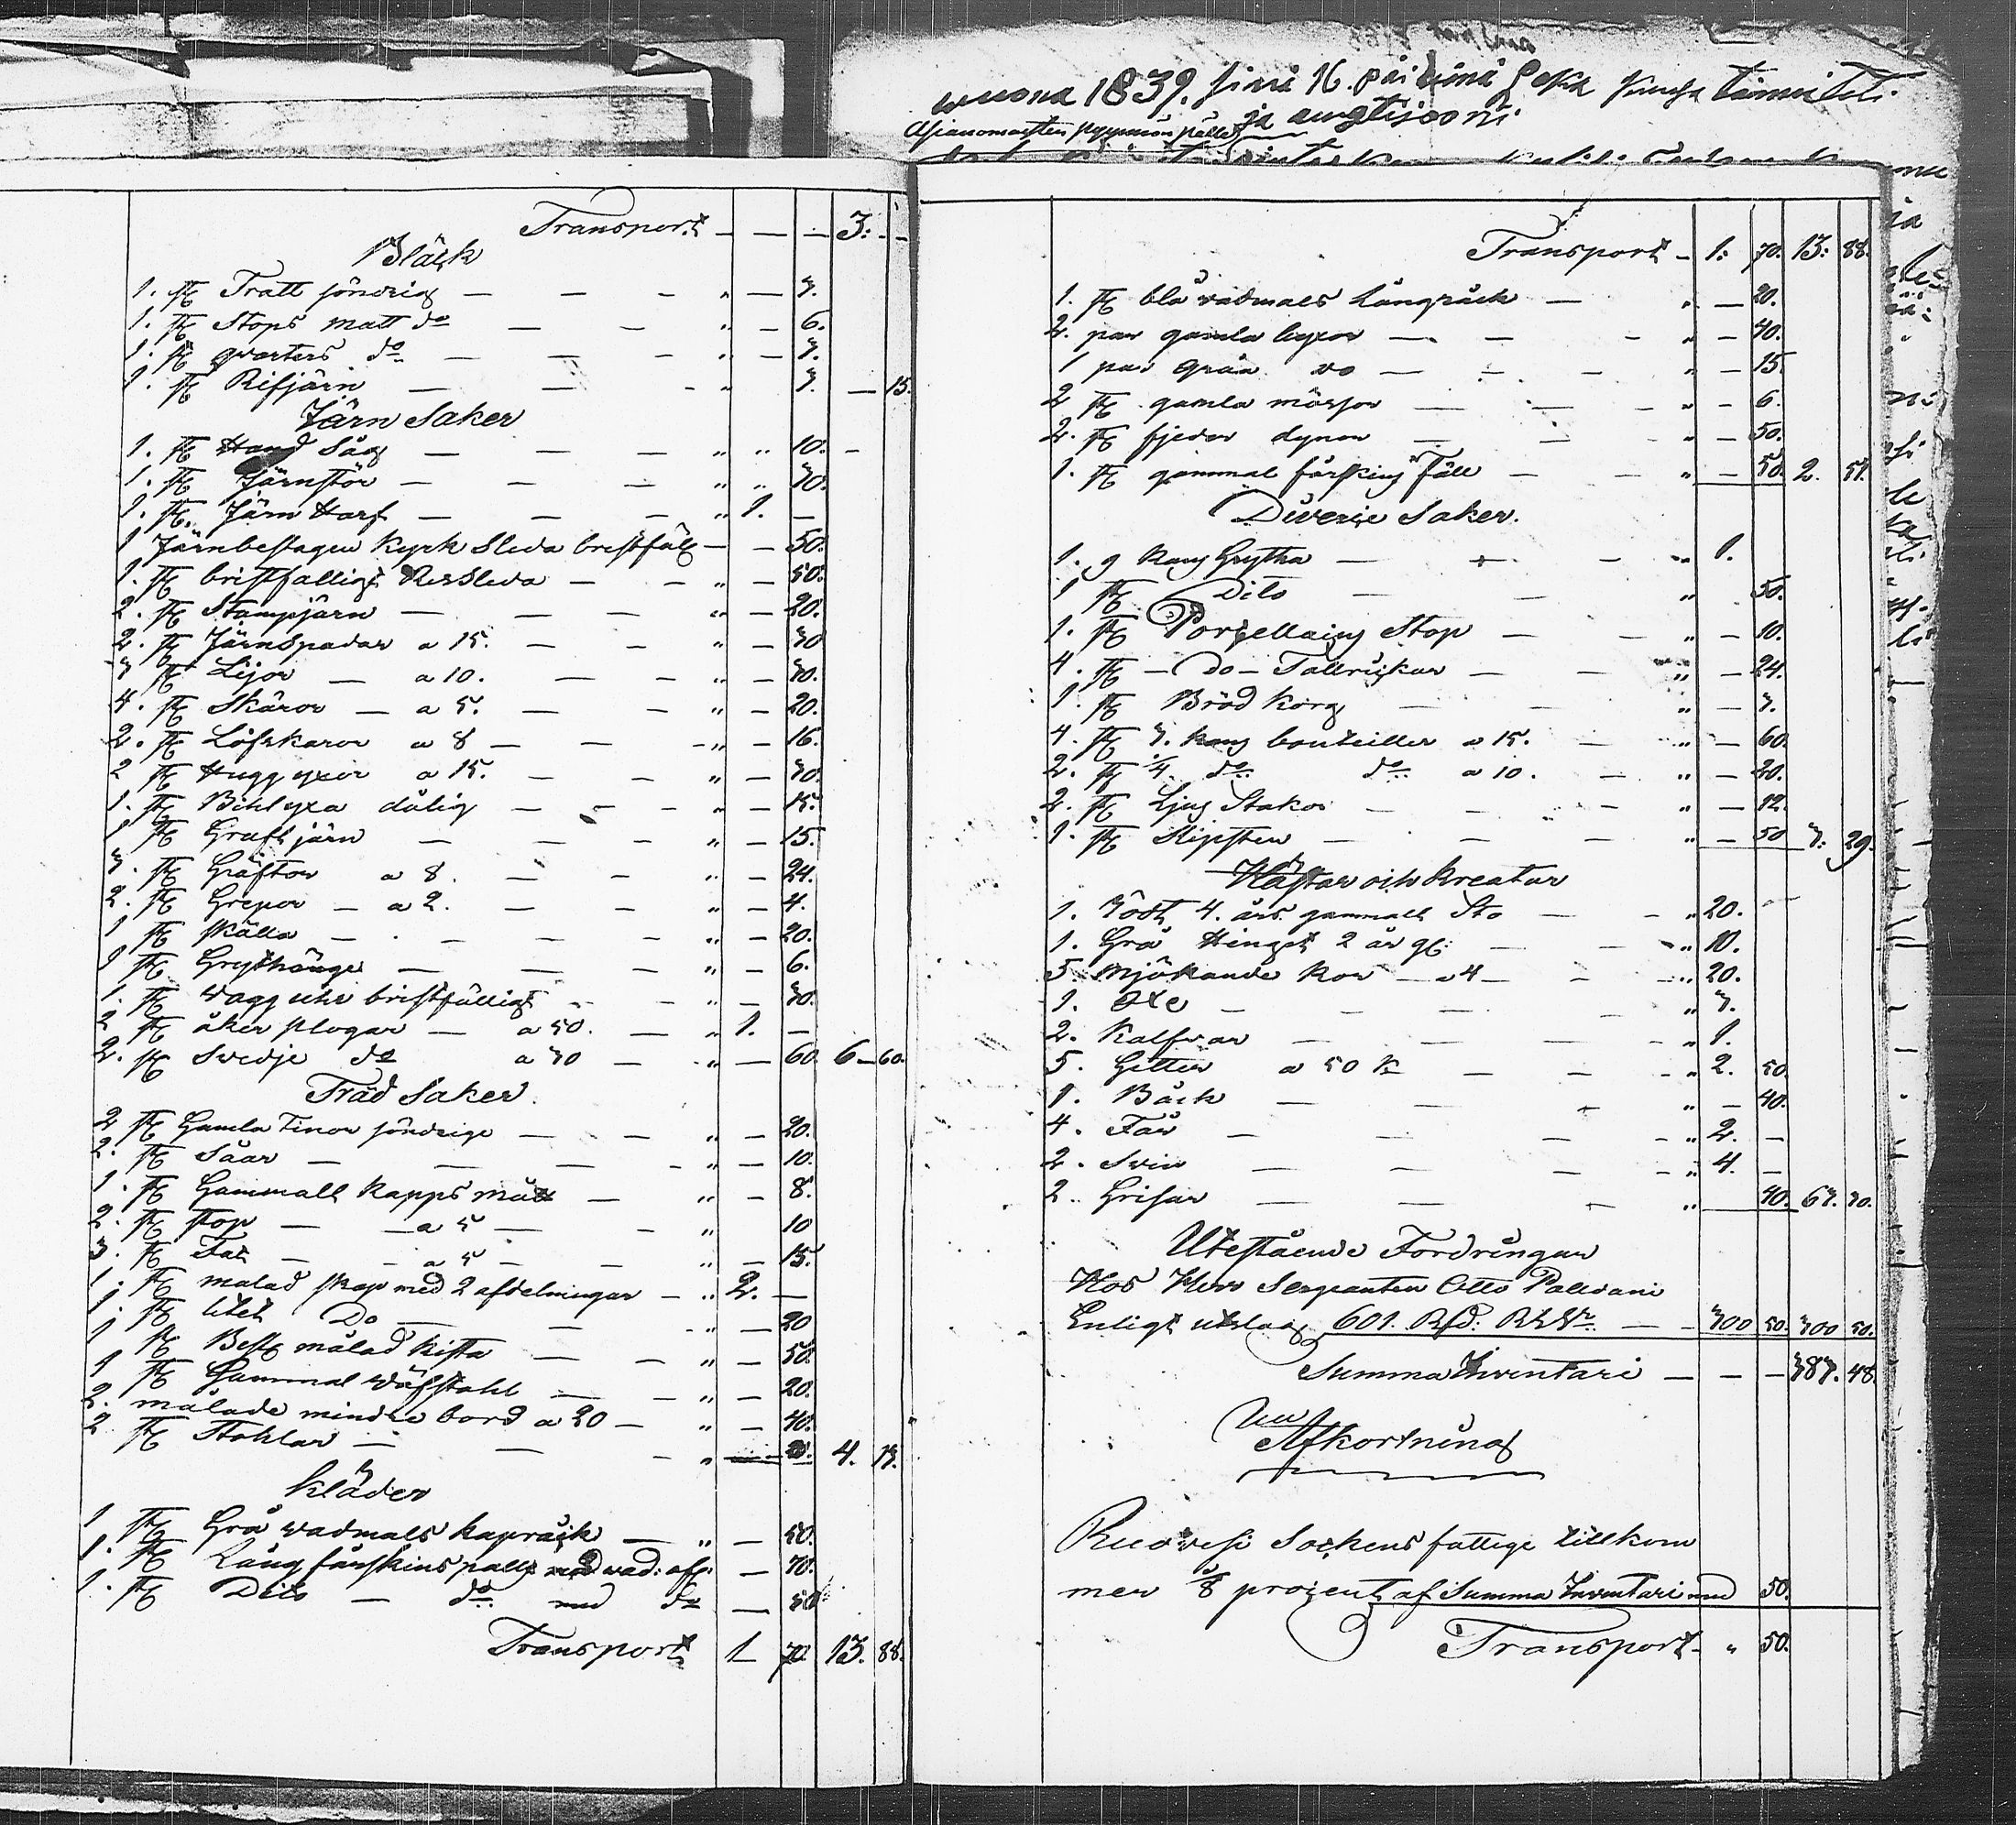 wuona 1839. sinä 16. päiwänä
ja auxtisooni
Asianomaisten pyynnön päälle
Transport — — — 3: — —
Bläck
1. st Tratt söndrig — — — " — 3.
1. st Stops matt do — — " — 6.
1. st qvarters do — — — " — 3.
1. st Rifjärn — — — " 3. — 15.
Järn Saker
1. st Hand Såg — — — " " 10. —
1. st Järnstör — — — " " 30.
1. st. Järn Harf — — — " 1. —
1 Järnbeslagen Kyrk Sleda bristfäll — — 50.
1. st bristfälligt Ressleda — — " — 50.
2. st Stampjärn — — — " — 20.
2. st Järnspadar a 15. — — " — 30
3 st Lijor — a 10. — — " — 30.
4. st Skäror — a 5. — — " — 20.
2. st Löfskaror a 8 — — — " — 16.
2 st Huggyxor a 15. — — " — 30.
1. st Bihlyxa dålig — — — " — 15.
1 st Graft järn — — — " — 15.
3. st Gräftor a 8. — — " — 24.
2. st Grepor — a 2. — — " — 4.
1 st skälla — . — — — " — 20.
1 st Grythänge — — — " — 6.
1. st wagg uhr bristfälligt — — " — 30.
2 st åker plogar — a 50. — " 1. —
2. st Svedje do a 30 — " — 60. 6 — 60.
Träd Saker.
2 st Gamla Tinor söndrige — — " — 20.
2. st Såar — — — — " — 10.
1. st Gammalt kapps mått — " — 8.
2. st stop — — a 5 — — " 10
3. st Fat — — a 5 — — " — 15.
1. st malad skap med 2 afdelningar — " 2. —
1. st litet Do — — — " — 20
1 st målad kista — — " — 50.
1 st Gammal wäfstohl — — " — 20.
2. målade mindre bord a 20 — " — 40.
2 st Stohlar — — — " — 20. 4. 13.
Kläder
1 st Grå wadmals kapråck — " — 50.
1. st Lång fårskins pälls med wad: — 70.
1. st Dito — do med do — 50
Transport 1 70 13. 88.
Transport — 1: 70. 13: 88.
1. st blå wadmals Långråck — " — 20.
2. par gamla byxor — — — " — 40.
1 par gråa do — — — " — 15.
2 st gamla mössor — — — " — 6.
2. st fjeder dynor — — — " — 50.
1. st gammal fårskins Fäll — — " — 50. 2. 51.
Diverse Saker.
1. 9 kans Grytha — — — " 1.
1 st Dito — — " 50.
1. st Porzellains Stop — — " — 10.
4. st — Do — Tallrickar — — " — 24.
1. st Bröd korg — — " — 3.
4. st 3. kans bouteiller a 15. — " — 60.
2. st 4. do do a 10. — " — 20.
2. st Ljus Stakor — — — " — 12.
1. st Slipsten — — — " — 50 3. 29.
Hästar och kreatur
1. Rödt 4. års gammalt Sto — — " 20. —
1. Grå Hingst 2 år gl: — — " 10.
5. Mjölkande kor — a 4 — — — " 20.
1. Oxe — — — — " 3.
2. Kalfvar — — — — " 1.
5. Getter a 50 K — — — " 2. 50.
1. Båck — — — " — 40.
4. Får — — — — " 2. —
2. Svin — — — — " 4. —
2. Grisar — — — " 40. 63. 30.
Utestående Fordringar
Hos Herr Sergeanten Otto Palwani
Enligt utslag 601. Rd: — — 300 50. 300 50.
Summa Inventari — — — 383. 48.
Afkortning
Ruowesi Sockens fattige tillkom
mer 1/8 procent af Summa Inventari med 50.
Transport — " 50.